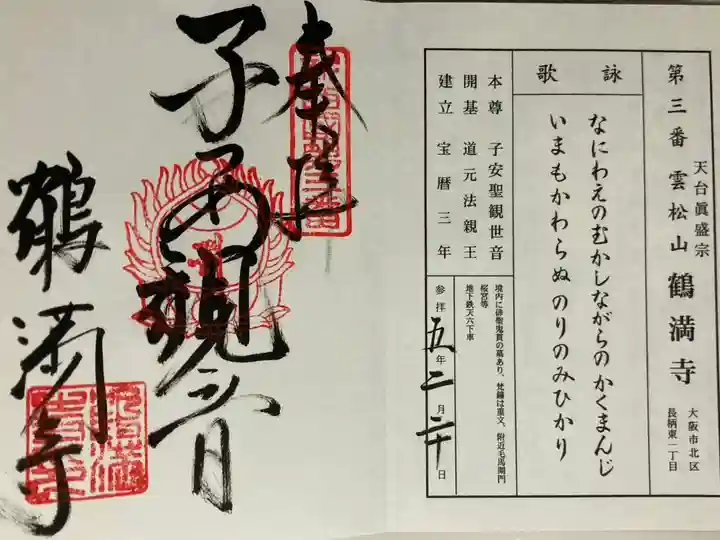 第三番 雲松山 鶴満寺
天台眞盛宗
大阪市北区
長柄東一丁目
詠歌
なにわえのむかしながらのかくまんじ
いまもかわらぬのりのみひかり
本尊 子安聖観世音
開基 道元法親王
建立 宝暦三年
境内に俳聖鬼貫の墓あり、梵鐘は重文。附近毛馬閘門
桜宮等
地下鉄天六下車
参拝 五年 二月 二十日
奉拝
子安観音
鶴満寺